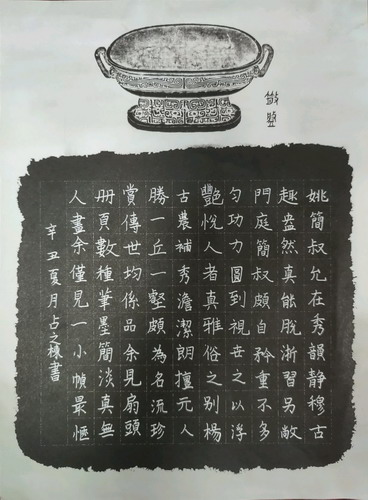 姚簡叔允在秀韻靜穆古
趣盎然真能脫浙習另敞
門庭簡叔頗自矜重不多
勻功力圓到視世之以浮
豔悅人者真雅俗之別楊
古農補秀澹潔朗擅元人
勝一丘一壑頗為名流珍
賞傳世均係品余見扇頭
冊頁數種筆墨簡淡真無
人畫余僅見一小幀最愜
辛丑夏月占之棟書